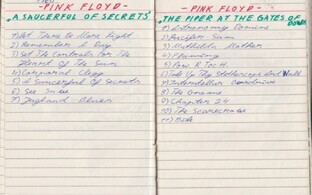 - PINK FLOYD -
"A SAUCERFUL OF SECRETS"
1) Let There Be More Light
2) Remember A Day
3) Set The Controls For The
Heart Of The Sun
4) Corporal Clegg
5) A Saucerful Of Secrets
6) See Saw
7) Jugband Blues
- PINK FLOYD -
"THE PIPER AT THE GATES OF
DAWN"
1) Astronomy Domine
2) Lucifer Sam
3) Matilda Mother
4) Flaming
5) Pow. R. Toc H.
6) Take Up Thy Stethoscope And Walk
7) Interstellar Overdrive
8) The Gnome
9) Chapter 24
10) The Scarecrow
11) Bike